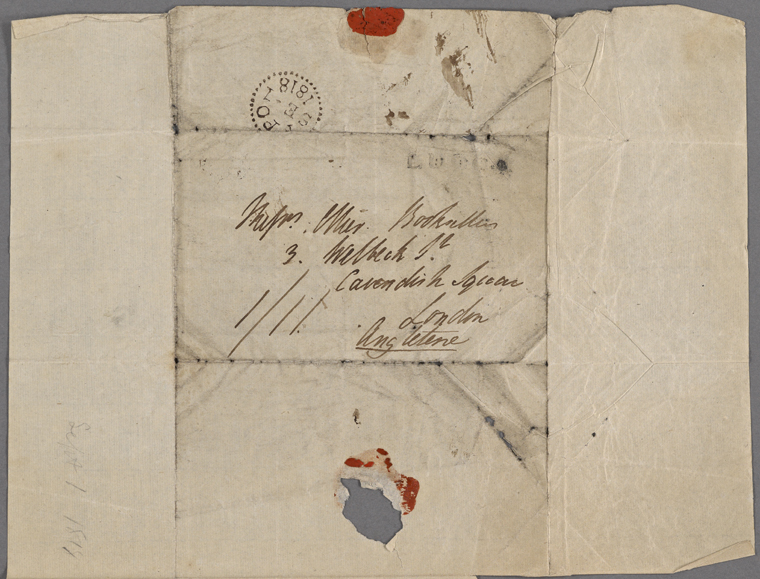 FPO
1818
Messrs. Ollier. Booksellers
3. Welbeck St.
Cavendish Square
London
Angleterre
1/11
Sept 1